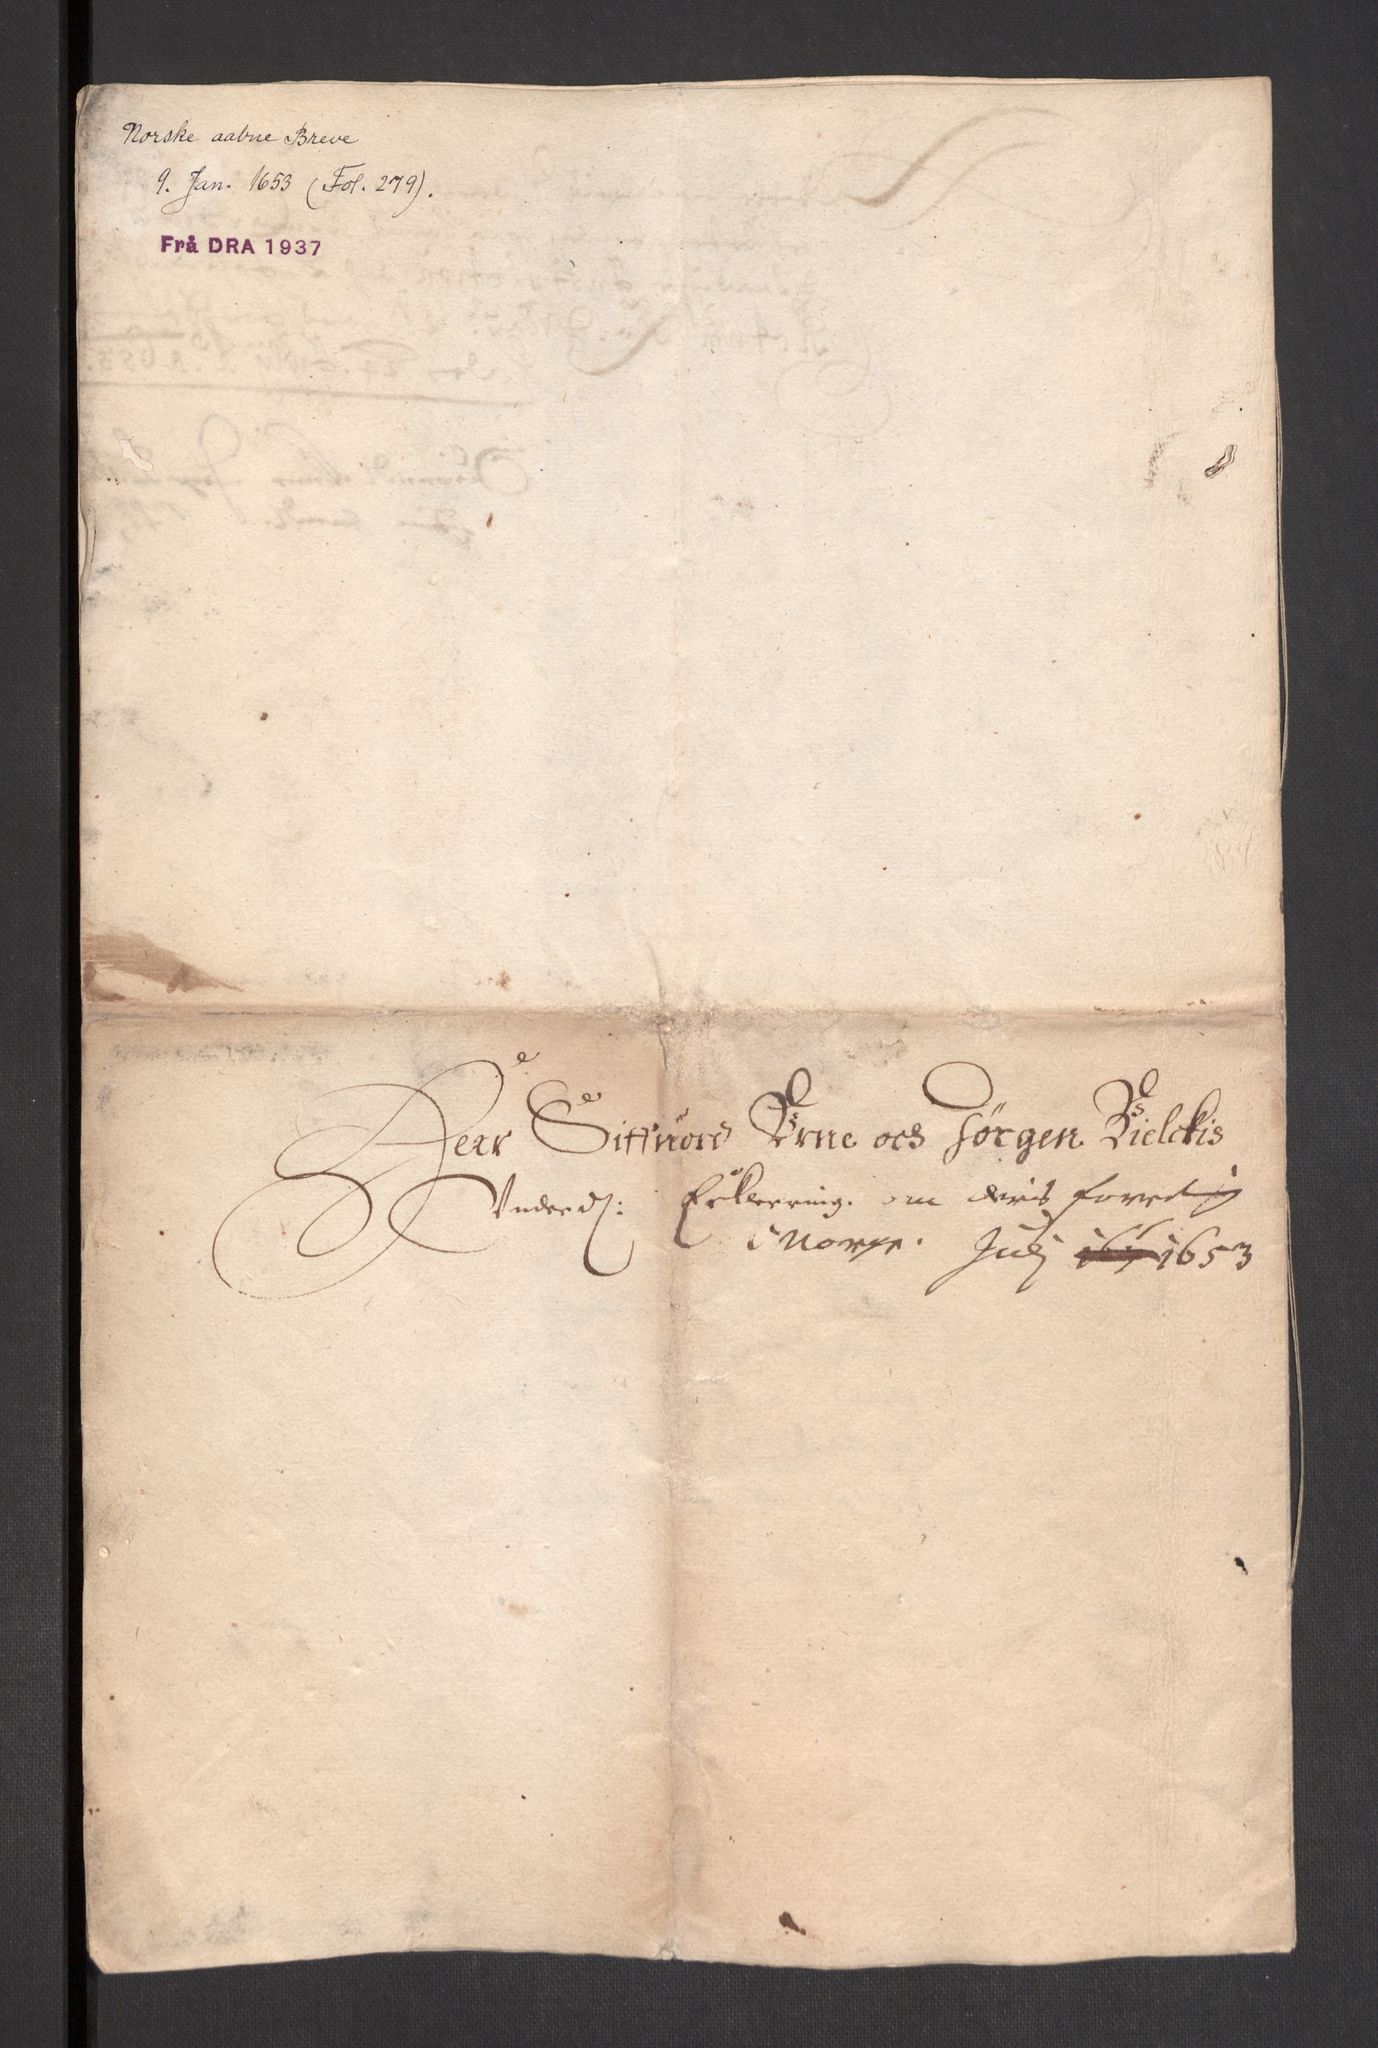 Norske aabne Breve
9. Jan. 1653 (Fol. 279).
Frå DRA 1937
Herr Siffuord Vrne och Jørgen Bielckis
Vnderd: Erklerring om deris
i Norge. Julj 1653